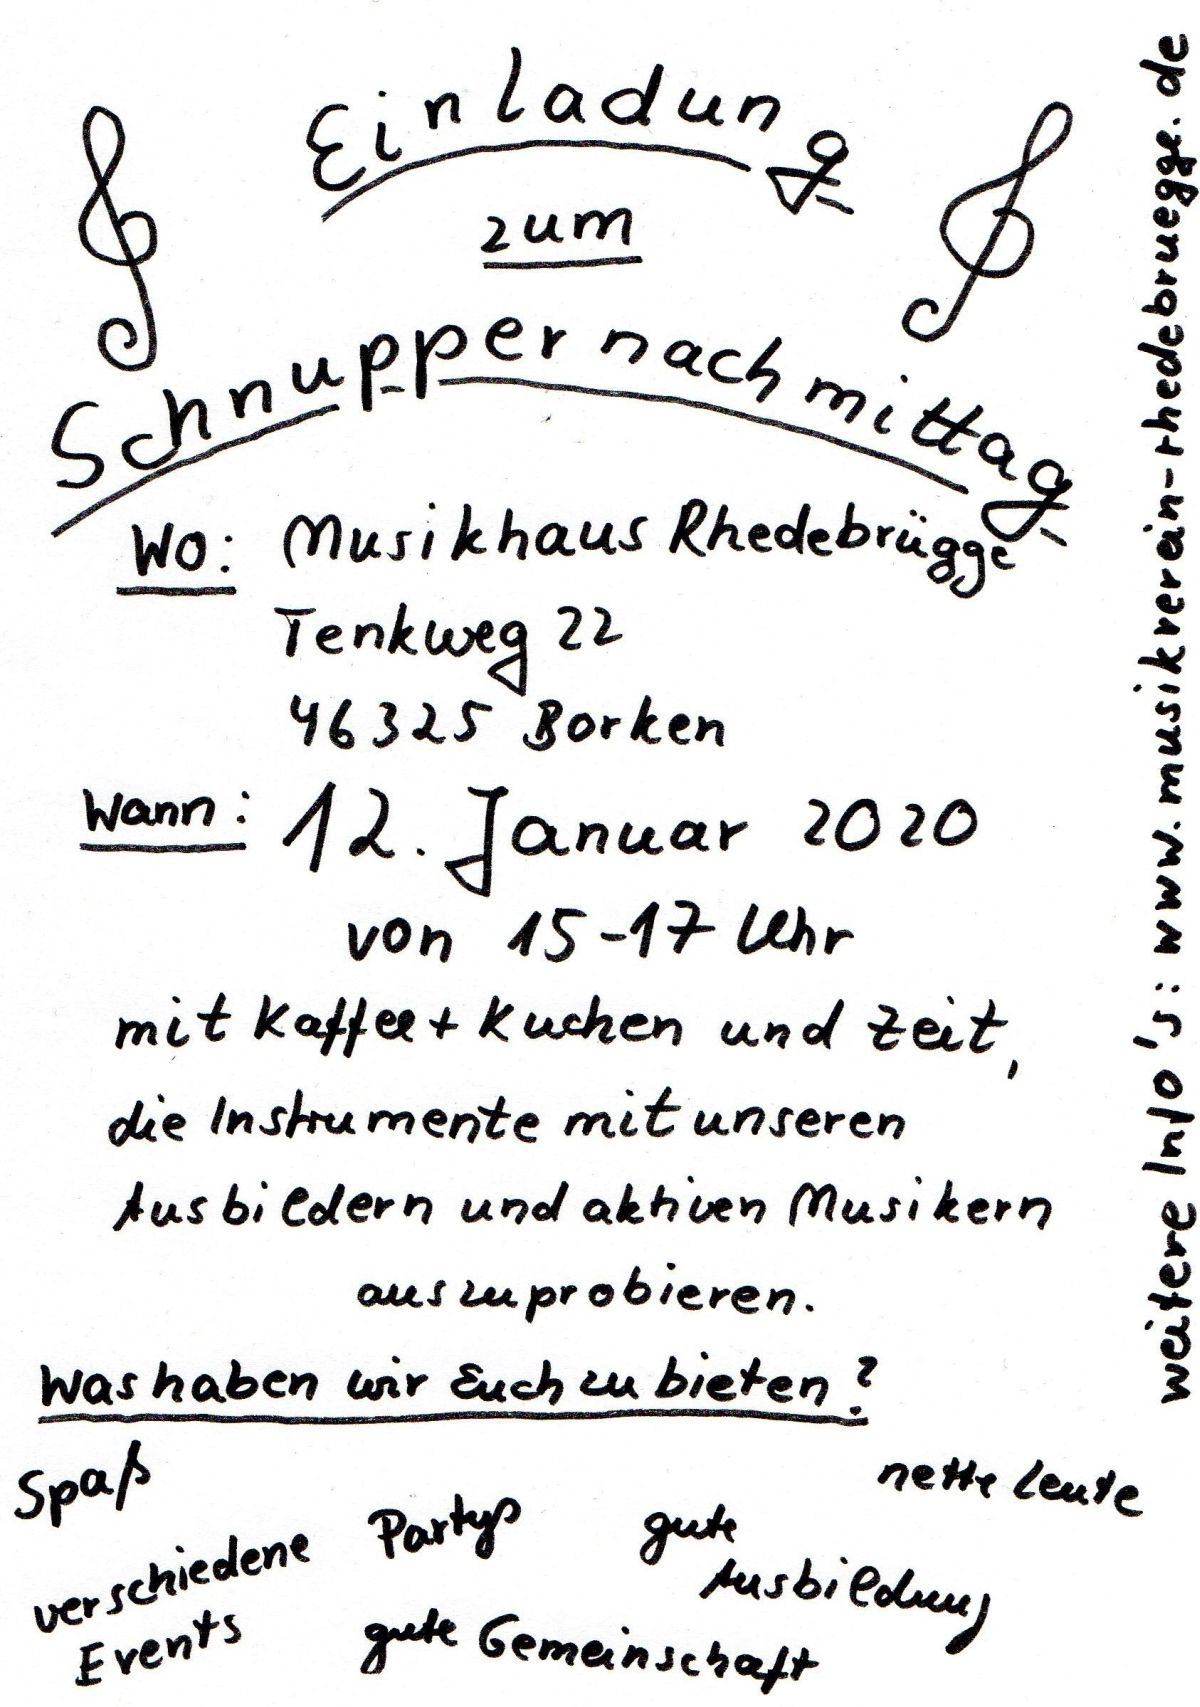 Einladung
zum
Schnuppernachmittag
Wo: Musikhaus Rhedebrügge
Tenkweg 22
46325 Borken
Wann: 12. Januar 2020
von 15-17 Uhr
mit Kaffee + Kuchen und Zeit,
die Instrumente mit unseren
Ausbildern und aktiven Musikern
auszuprobieren.
Was haben wir Euch zu bieten?
Spaß
nette Leute
Partys
gute
Ausbildung
verschiedene
Events
gute Gemeinschaft
weitere Info's: www.musikverein-rhedebruegge.de